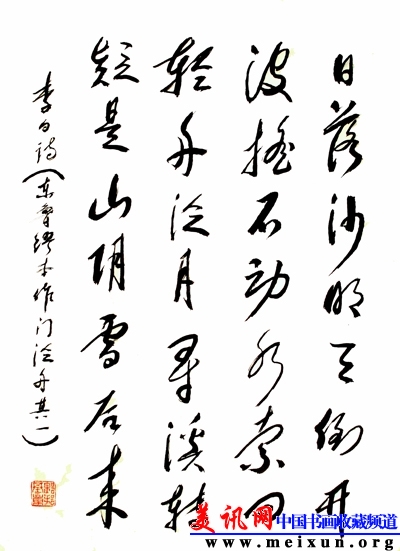 日落沙明天倒开
波摇石动水萦回
轻舟泛月寻溪转
疑是山阴雪后来
李白诗(东鲁缪本作门泛舟其一)
美讯网 中国书画收藏频道
www.meixun.org